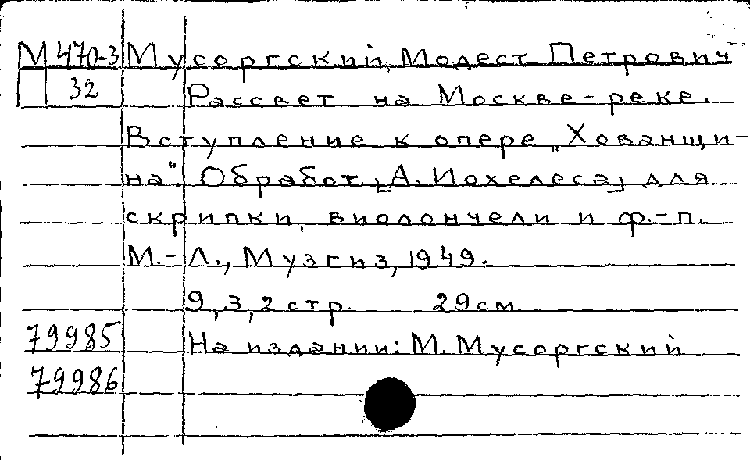 М 470-3 Мусоргский, Модест Петрович
32 Рассвет на Москве-реке.
Вступление к опере „Хованщи-
на". Обработ. [А. Иохелеса] для
скрипки, виолончели и ф.-п.
М.-Л., Музгиз, 1949.
9, 3, 2 стр. 29 см
79985 На издании: М. Мусоргский
79986